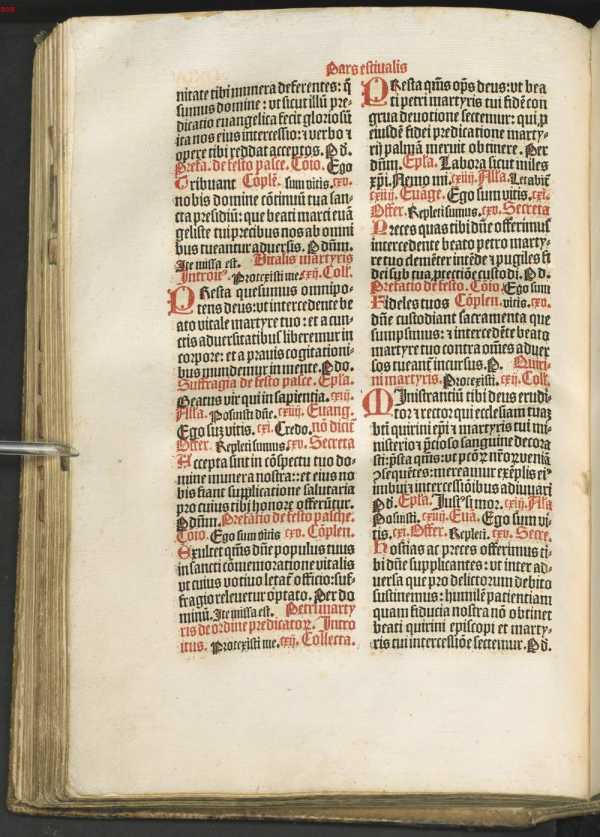 Pars estiualis
nitate tibi munera deferentes: q̄
sumus domine: vt sicut illū pre-
dicatio euangelica fecit gloriosū
ita nos eius intercessio: ⁊ verbo ⁊
opere tibi reddat acceptos. P d.
Prefa. de festo pasce. Cōio. Ego
Tribuant Cōplē. sum vitis. cxv.
nobis domine cōtinuū tua san-
cta presidiū: que beati marci euā
geliste tui precibus nos ab omni
bus tueantur aduersis. P dn̄m.
Ite missa est. Uitalis martyris
Introit᷒. Protexisti me cxij. Coll.
PResta quesumus omnipo-
tens deus: vt intercedente be
ato vitale martyre tuo: et a cun-
ctis aduersitatibus liberemur in
corpore: et a prauis cogitationi-
bus mundemur in mente. P do.
Suffragia de festo pasce. Epl̄a.
Beatus vir qui in sapientia. cxij.
Al̄la. Posuisti dn̄e. cxiiij. Euang.
Ego suꝫ vitis. cxi. Credo. nō dicit̄
Offer. Repleti sumus. cxv. Secreta
Accepta sint in cōspectu tuo do-
mine munera nostra: et eius no
bis fiant supplicatione salutaria
pro cuius tibi honore offerūtur.
P dn̄um. Prefatio de festo pasche.
Cōio. Ego sum vitis cxv. Cōplen.
Exultet qm̄s dn̄e populus tuus
in sancti cōmemoratione vitalis
vt cuius votiuo letat̄ officio: suf-
fragio releuetur optato. Per do
minū. Ite missa est. Petri marty
ris de ordine predicatoꝝ. Intro
itus. Protexisti me. cxij. Collecta.
PResta qm̄s op̄s deus: vt bea
ti petri martyris tui fidē con
grua deuotione sectemur: qui ꝓ
eiusdē fidei predicatione marty-
rij palmā meruit obtinere. Per
dn̄m. Epl̄a. Labora sicut miles
xp̄i. Nemo mi. cxiij. Al̄la. Letabit̄
cxiiij. Euāge. Ego sum vitis. cxi.
Offer. Repleti sumus. cxv. Secreta
Preces quas tibi dn̄e offerimus
intercedente beato petro marty-
re tuo clemēter intēde: ⁊ pugiles fi
dei sub tua ꝓtectiōe custodi. P d.
Prefatio de festo. Cōio. Ego sum
Fideles tuos Cōplen. vitis. cxv.
dn̄e custodiant sacramenta que
sumpsimus: ⁊ intercedēte beato
martyre tuo contra om̄es aduer
sos tueant̄ incursus. P. Quiri-
ni martyris. Protexisti. cxij. Coll.
MInistrantiū tibi deus erudi
tor ⁊ rector qui ecclesiam tuaꝫ
bt̄i quirini ep̄i ⁊ martyris tui mi-
nisterio ⁊ p̄cioso sanguine decora
sti: p̄sta qm̄s: vt pcōꝝ nr̄oꝝ veniā
ꝯsequētes: mereamur exēplis ei᷒
imbui ⁊ intercessiōibus adiuuari
P d. Epl̄a. Just᷒ si mor. cxiij. Al̄la
Posuisti. cxiiij. Euā. Ego sum vi-
tis. cxi. Offer. Repleti. cxv. Secre.
Hostias ac preces offerimus ti-
bi dn̄e supplicantes: vt inter ad-
uersa que pro delictorum debito
sustinemus: humilē patientiam
quam fiducia nostra nō obtinet
beati quirini episcopi et marty-
ris tui intercessiōe sectemur. P d.